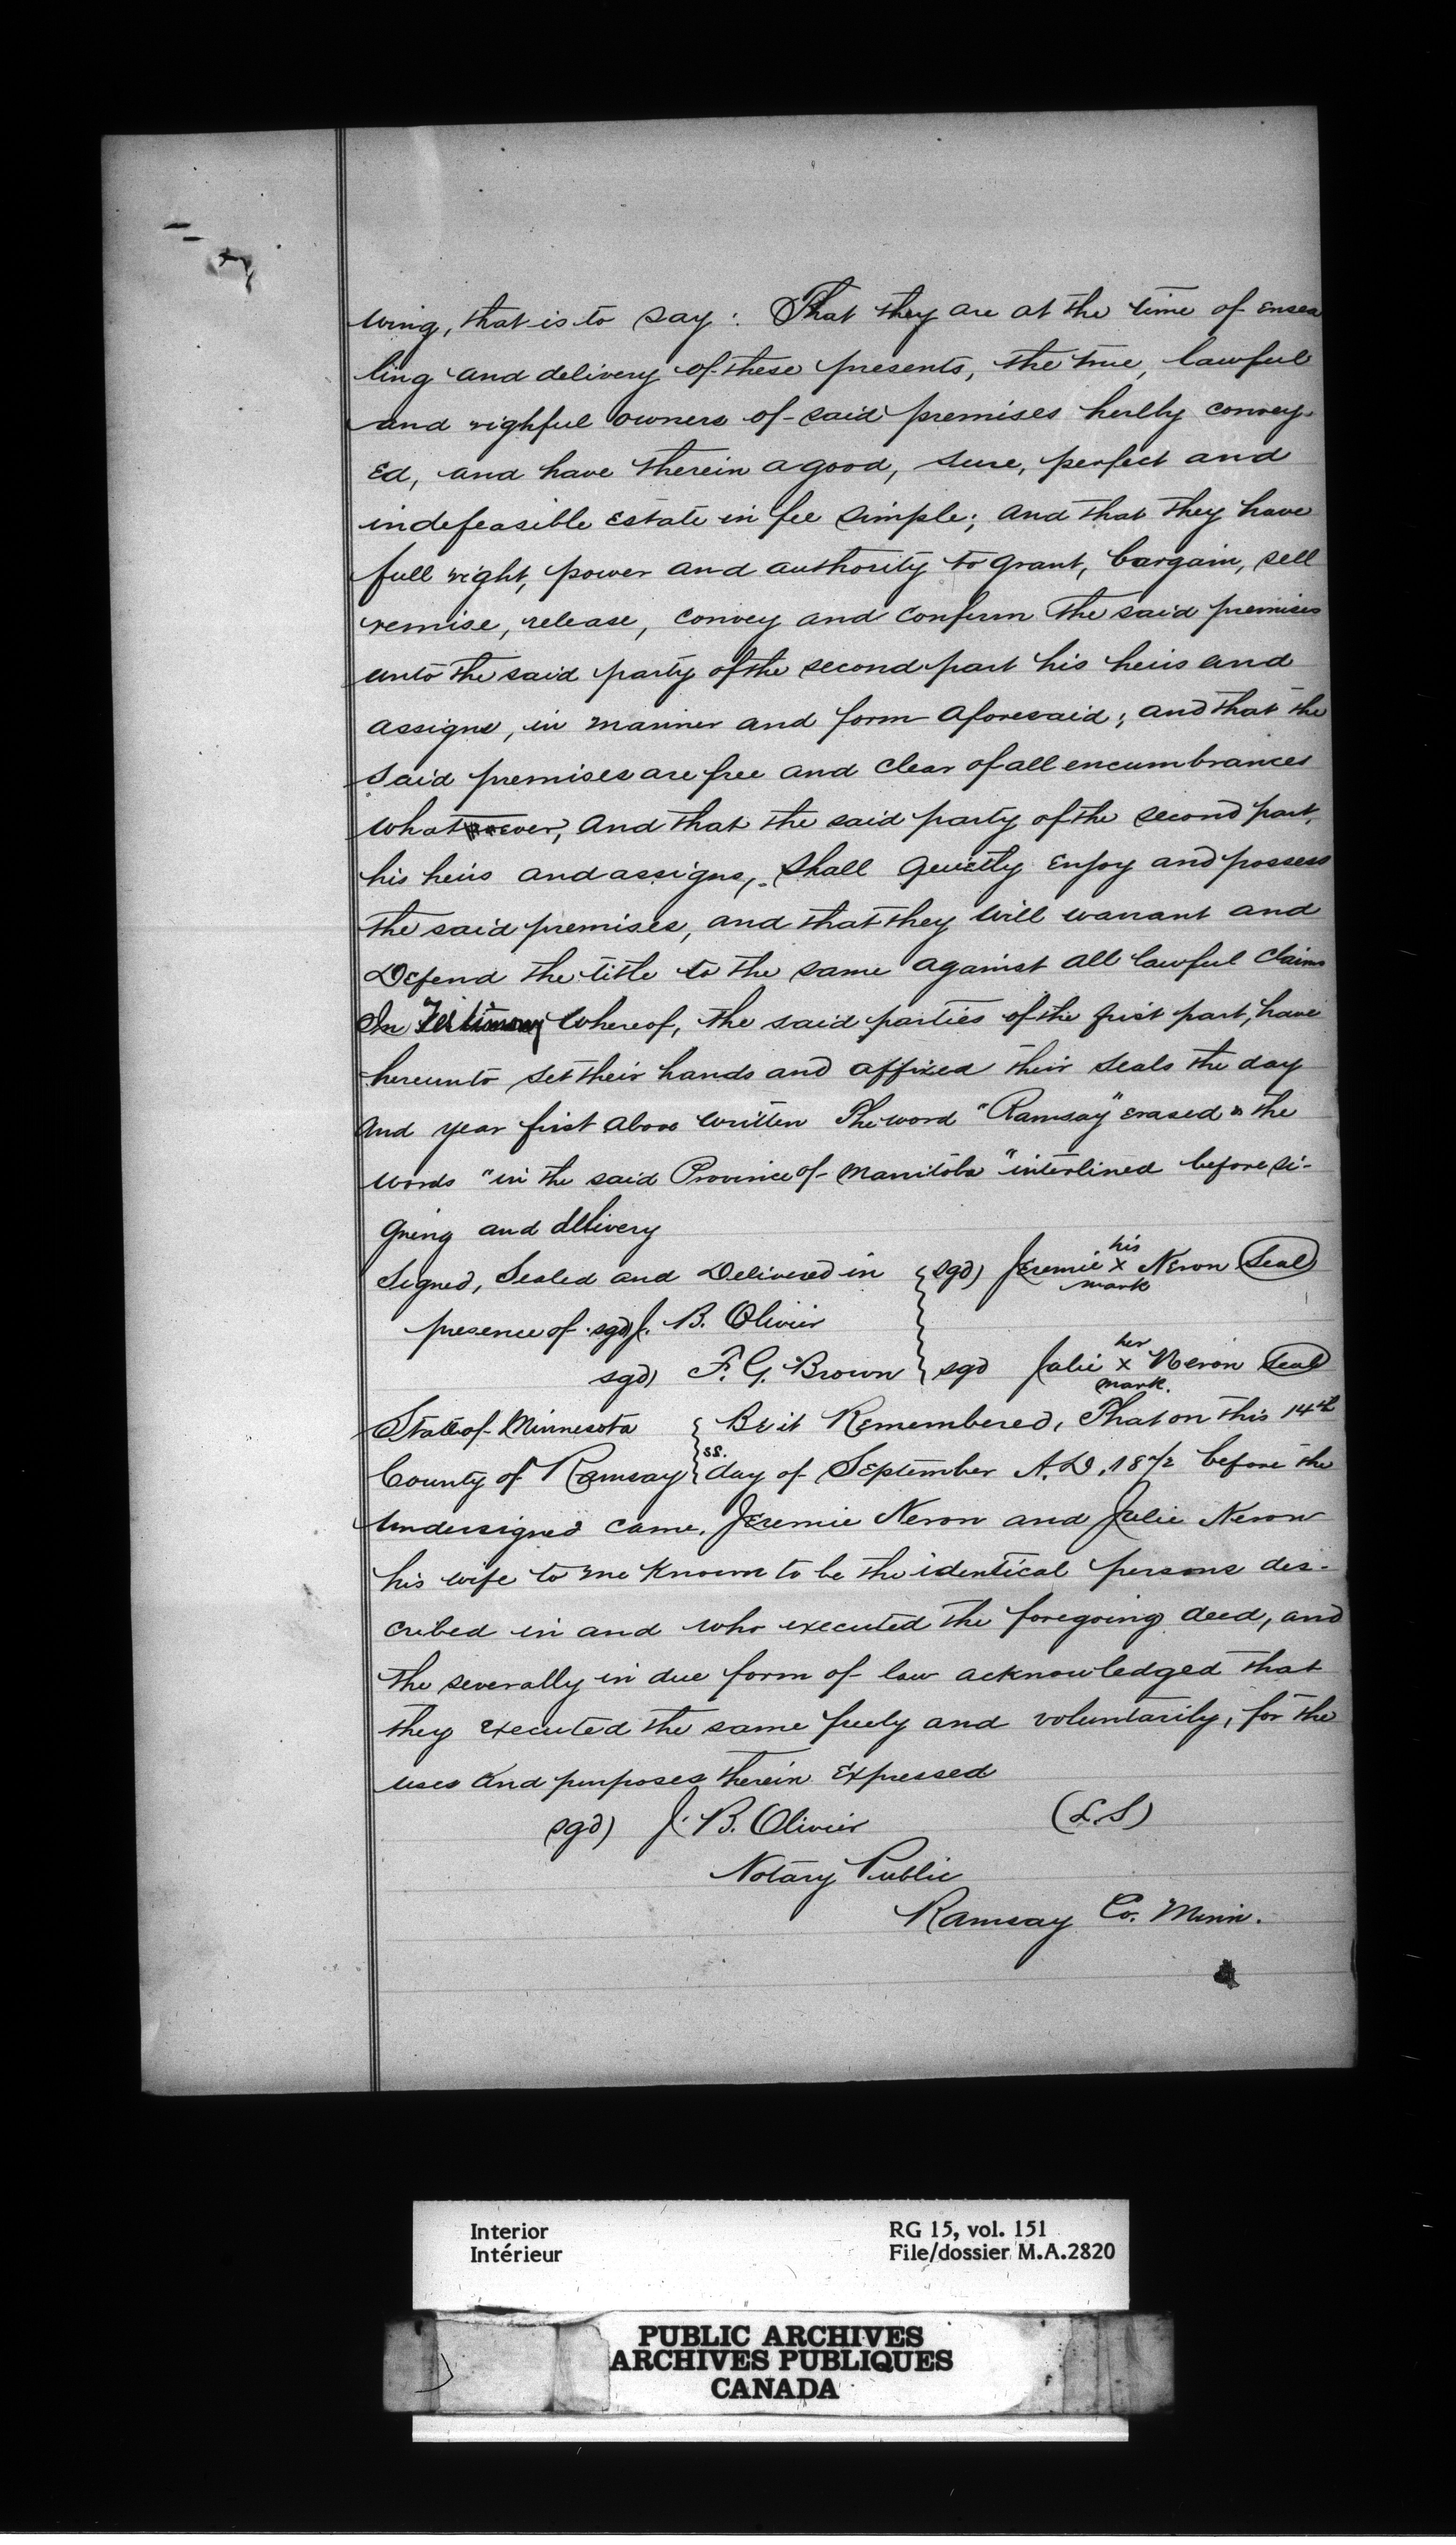 wing, that is to say: That they are at the time of ensea
ling and delivery of these presents, the true, lawful
and righful owners of said premises herlby convey-
ed, and have therein a good, sure, perfect and
indefeasible Estate in fee simple; and that they have
full right, power and authority to grant, bargain, sell
remise, release, convey and confirm the said premises
unto the said party of the second part his heirs and
assigns, in manner and form aforesaid; and that the
said premises are free and clear of all encumbrances
whatsoever, and that the said party of the second part,
his heirs and assigns, shall quietly enjoy and possess
the said premises, and that they will warrant and
Defend the title to the same against all lawful claims
In Testimony Whereof, the said parties of the first part, have
hereunto set their hands and affixed their seals the day
and year first above written The word "Ramsay" erased & the
words "in the said Province of Manitoba" interlined before si-
gning and delivery
Signed, Sealed and Delivered in sgd) Jeremie his x mark Neron Seal
presence of sgd) J. B. Olivier
sgd) F. G. Brown sgd Julie her x mark. Neron Seal
State of Minnesota Be it Remembered, That on this 14th
County of Ramsay ss. day of September A.D. 1872 before the
undersigned came, Jeremie Neron and Julie Neron
his wife to me Known to be the identical persons des-
cribed in and who executed the foregoing deed, and
the severally in due form of law acknowledged that
they executed the same freely and voluntarily, for the
uses and purposes therein Expressed
sgd) J. B. Olivier (L.S)
Notary Public
Ramsay Co. Minn.
Interior RG 15, vol. 151
Intérieur File/dossier M.A.2820
PUBLIC ARCHIVES
ARCHIVES PUBLIQUES
CANADA